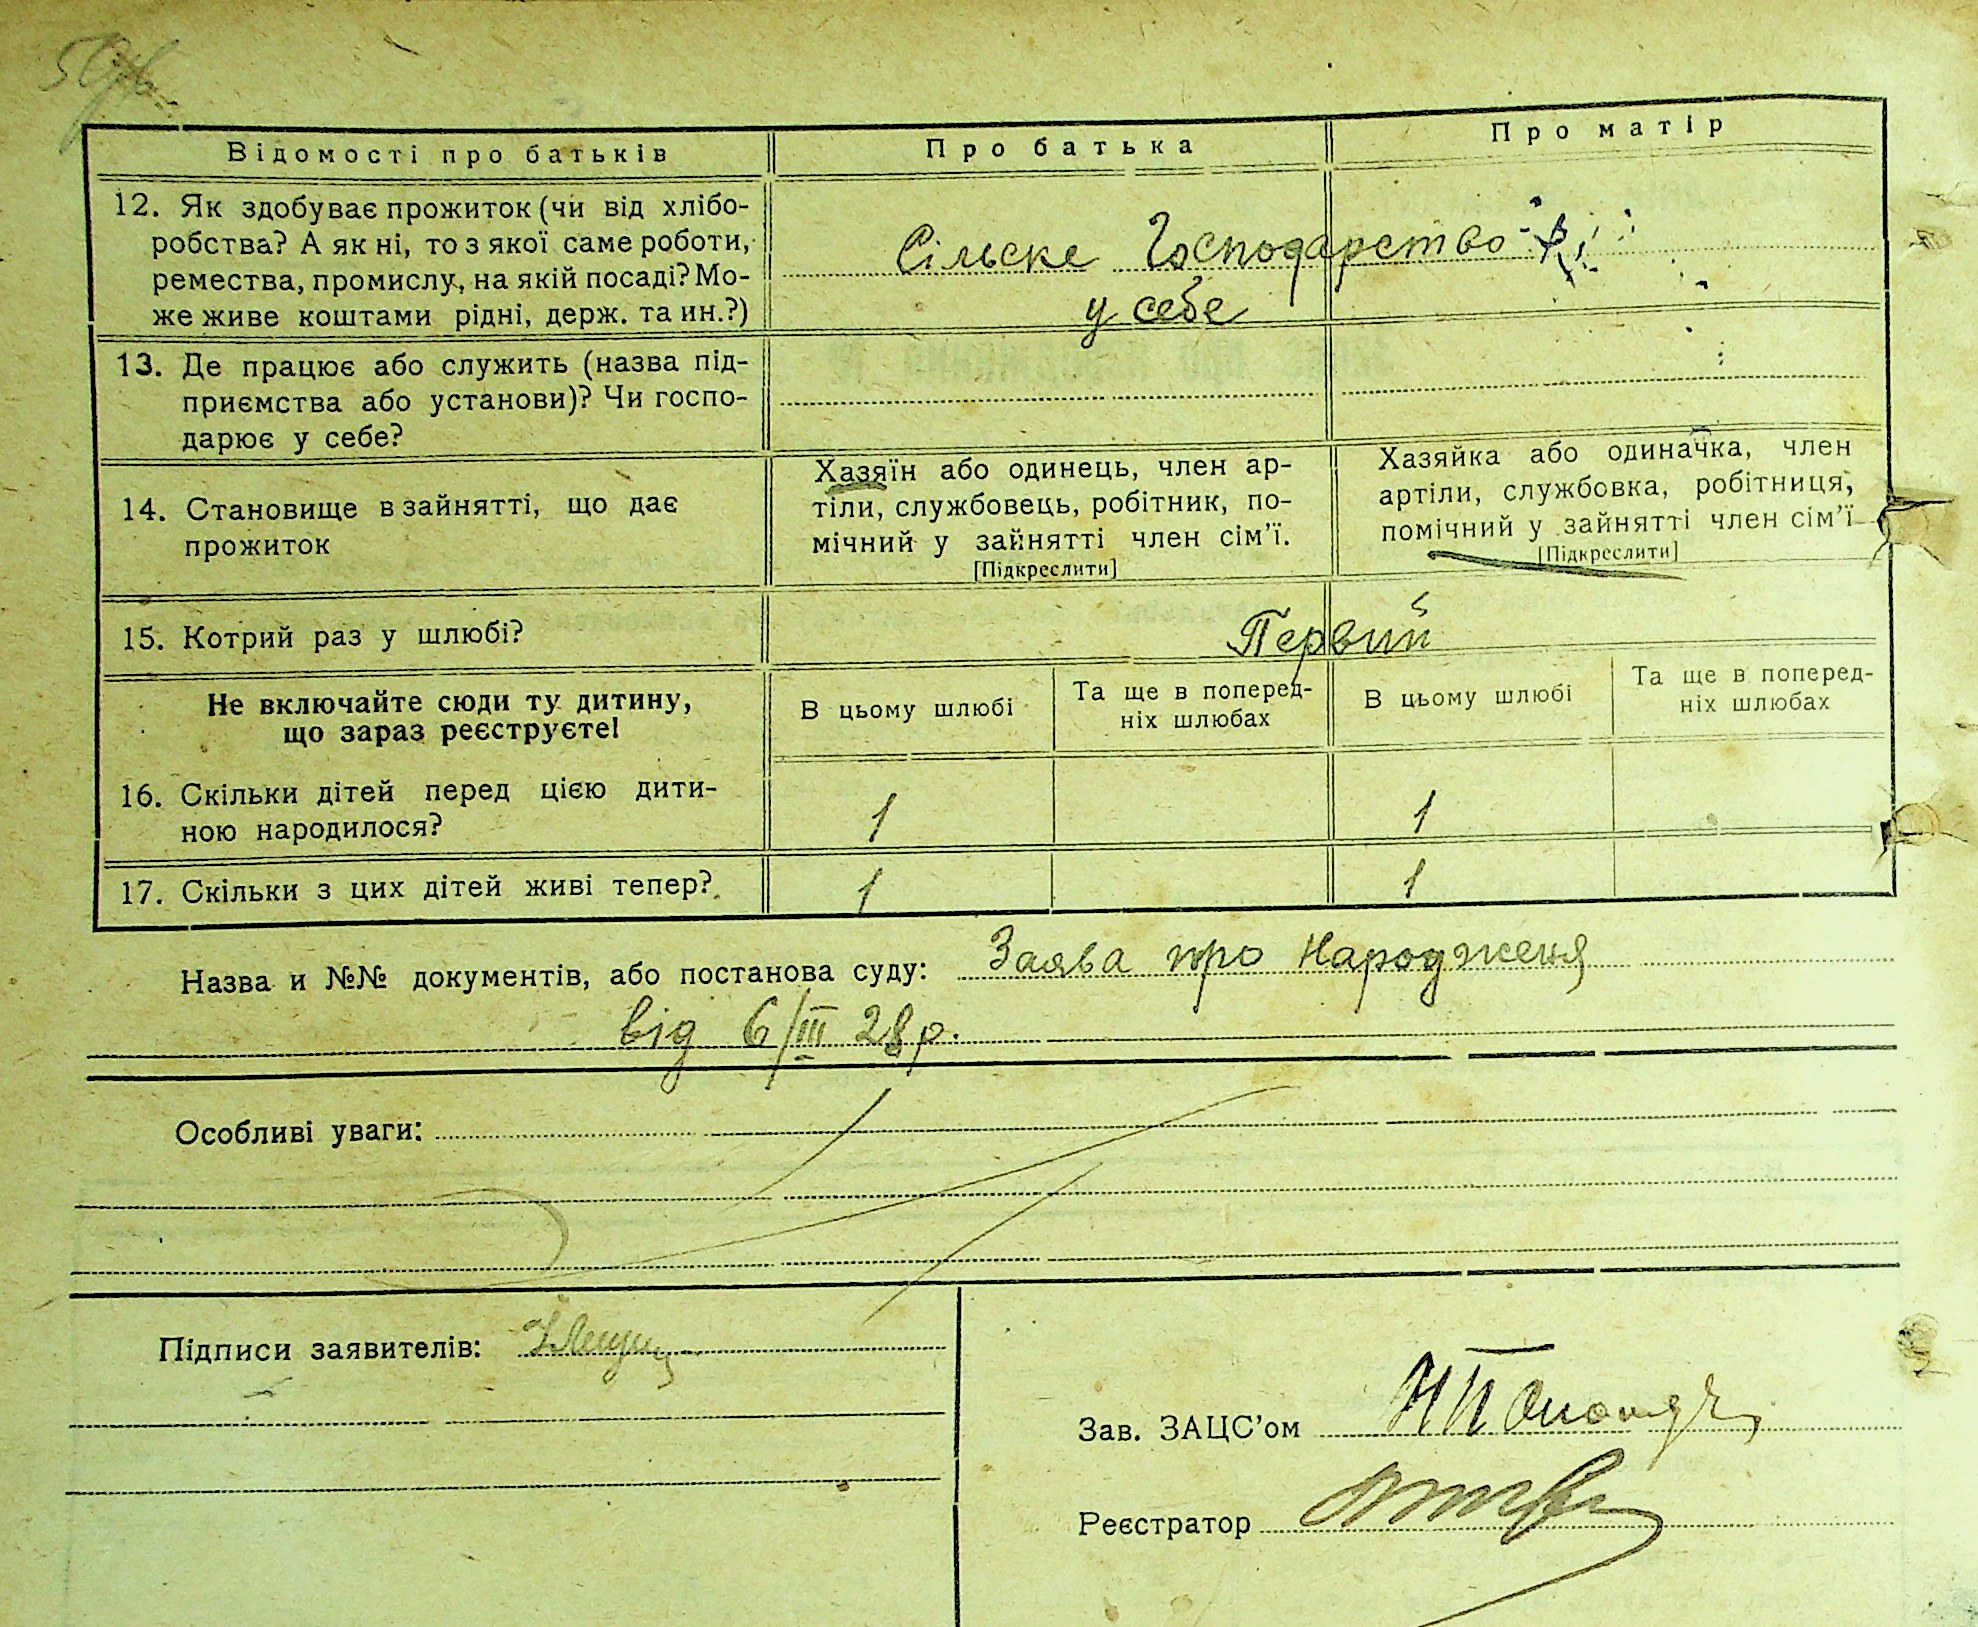 Відомості про батьків Про батька Про матір
12. Як здобуває прожиток (чи від хлібо-
робства? А як ні, то з якої саме роботи,
ремества, промислу, на якій посаді? Мо-
же живе коштами рідні, держ. та ин.?)
Сільске Господарство
у себе
13. Де працює або служить (назва під-
приємства або установи)? Чи госпо-
дарює у себе?
14. Становище в зайнятті, що дає
прожиток
Хазяїн або одинець, член ар-
тіли, службовець, робітник, по-
мічний у зайнятті член сім'ї.
[Підкреслити]
Хазяйка або одиначка, член
артіли, службовка, робітниця,
помічний у зайнятті член сім'ї
[Підкреслити]
15. Котрий раз у шлюбі? Первий
Не включайте сюди ту дитину,
що зараз реєструєте!
В цьому шлюбі
Та ще в поперед-
ніх шлюбах
В цьому шлюбі
Та ще в поперед-
ніх шлюбах
16. Скільки дітей перед цією дити-
ною народилося?
1 1
17. Скільки з цих дітей живі тепер? 1 1
Назва и №№ документів, або постанова суду: Заява про Народженя
від 6/III 28 р.
Особливі уваги:
Підписи заявителів:
Зав. ЗАЦС'ом
Реєстратор